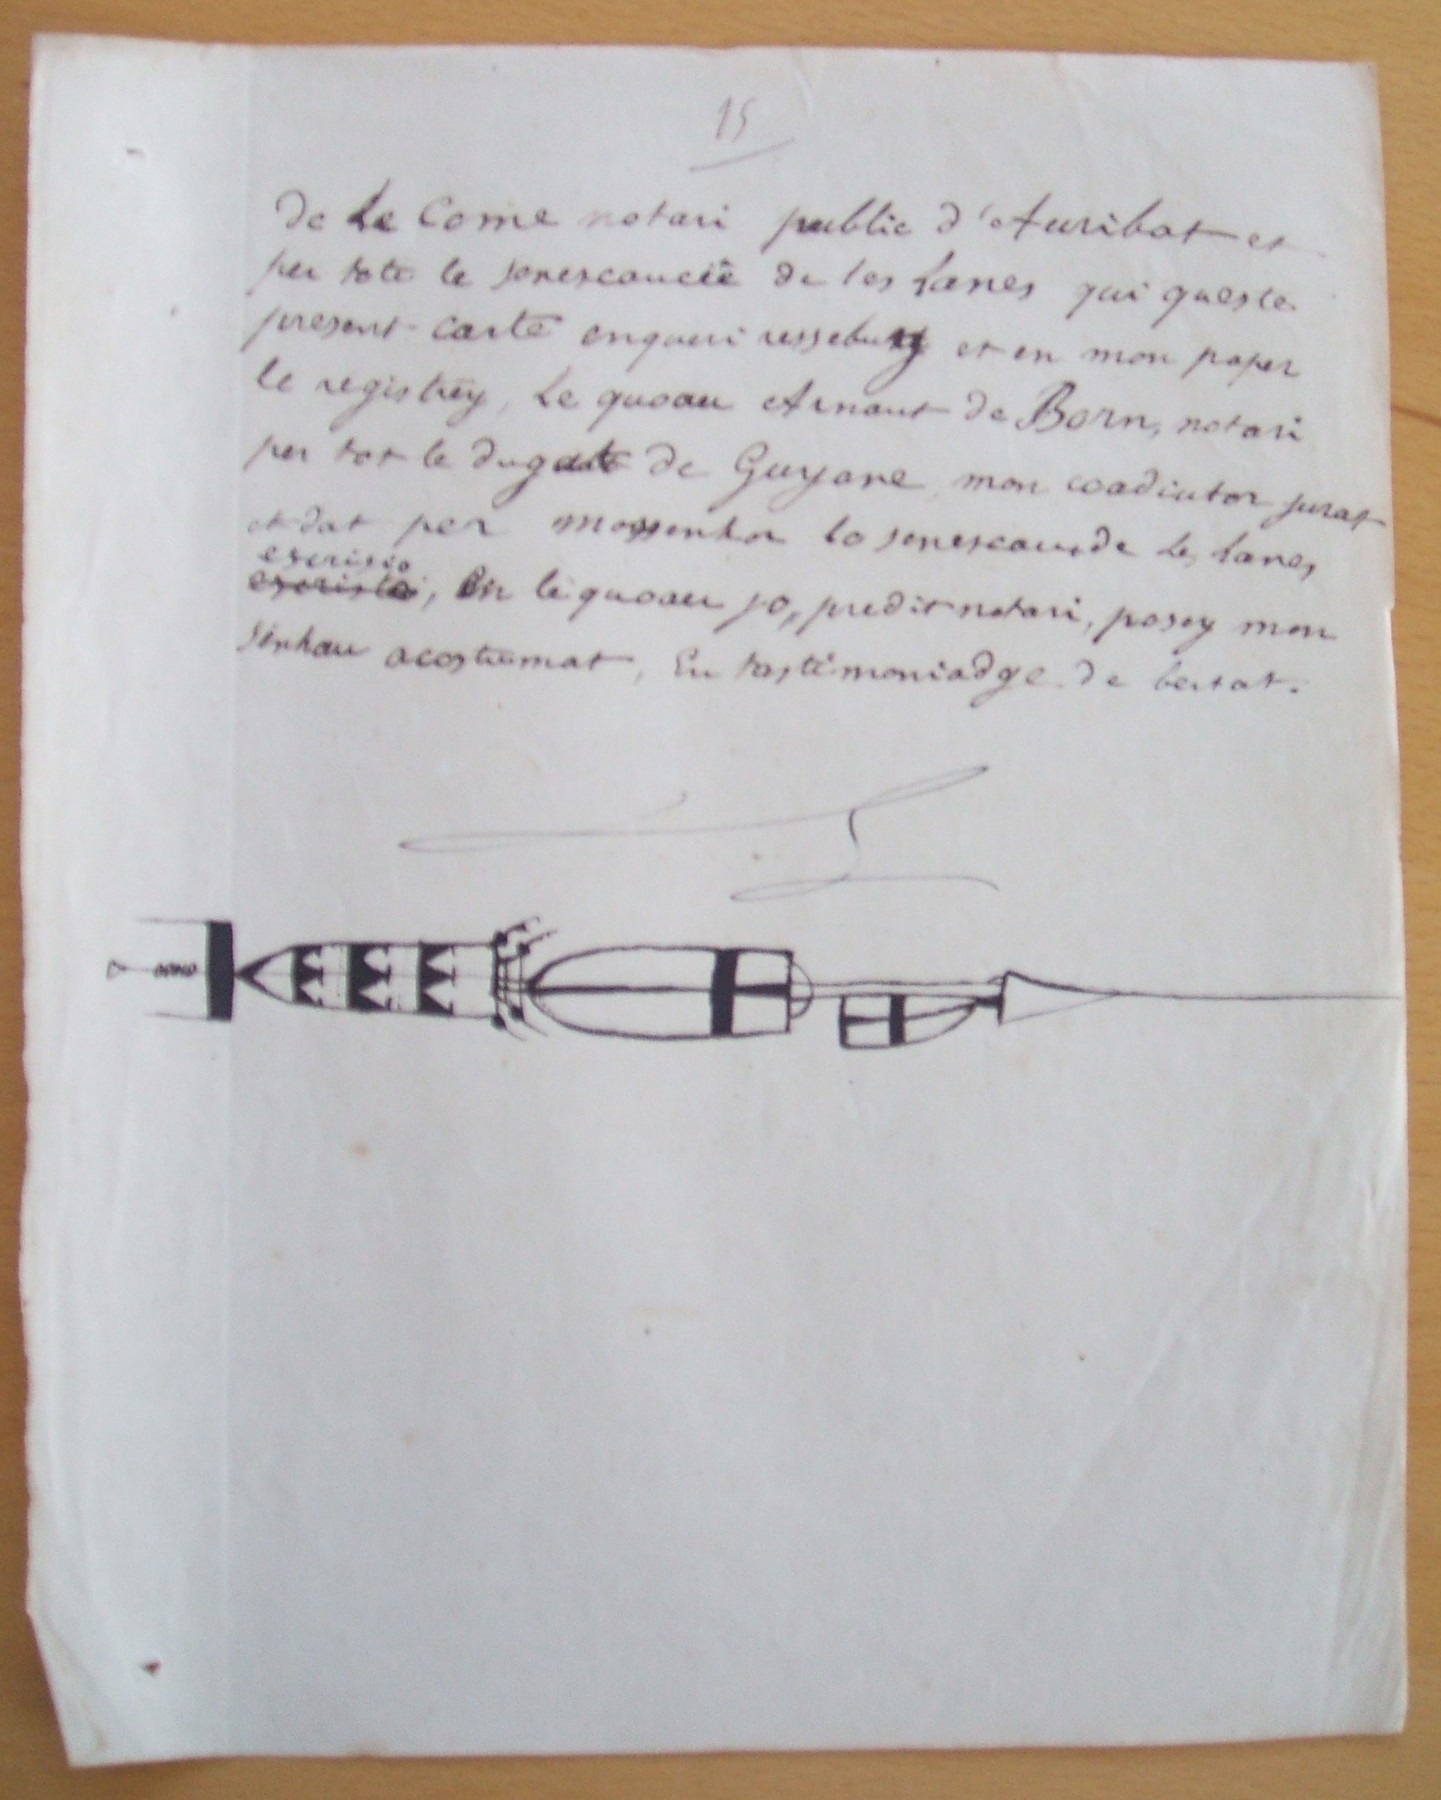 15
de Le Come notari public d'Auribat et
per tote le senescaucie de les Lanes qui queste
present carte enqueri ressebuy et en mon paper
le registrey, Le quoau Arnaut de Born, notari
per tot le dugat de Guyane mon coadiutor jurat
et dat per mossenhor lo senescau de les Lanes
escrisco
, En le quoau jo, predit notari, posey mon
sinhau acostumat, En testimoniadge de bertat.